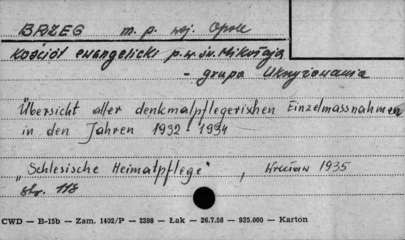 BRZEG m. p. woj. Opole
Kościół ewangelicki p.w. św. Mikołaja
- grupa Ukrzyżowania
Übersicht aller denkmalpflegerischen Einzelmassnahmen
in den Jahren 1932 - 1934
„Schlesische Heimatpflege", Wrocław 1935
str. 118
CWD — B-15b — Zam. 1402/P — 2398 — Łak — 26.7.58 — 935.000 — Karton